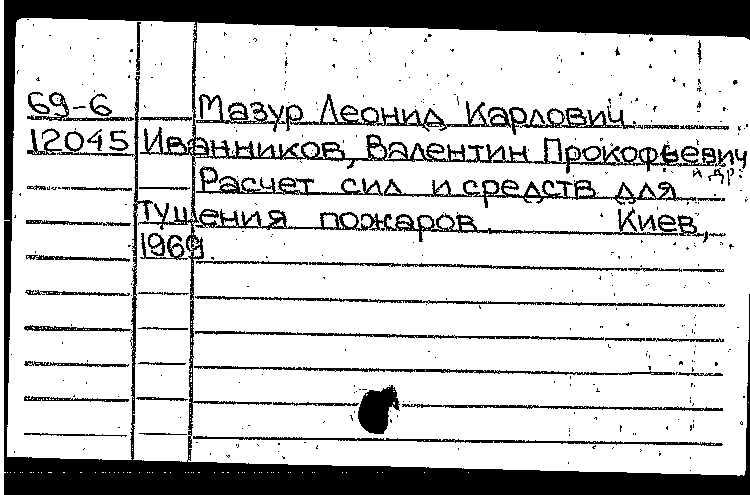 69-6 Мазур Леонид Карлович.
12045 Иванников, Валентин Прокофьевич
и др.
Расчет сил и средств для
тушения пожаров. Киев,
1969.